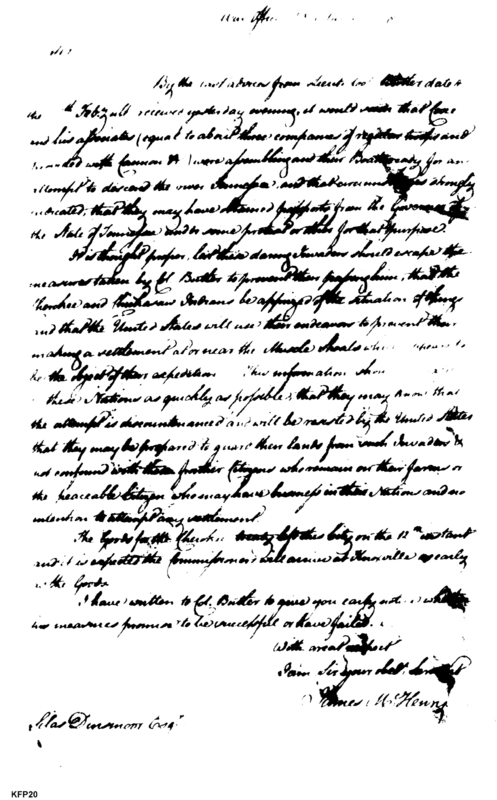 War Office
Sir
By the last advices from Lieut Col Butler dated
the Feby ult received yesterday evening, it would seem that Coxe
and his associates (equal to about three companies of regular troops and
provided with Cannon &) were assembling on their Boats ready for an
attempt to descend the river Tennessee, and that circumstances strongly
indicated, that they may have obtained passports from the Governor of
the State of Tennessee under some pretext or other for that purpose.
It is thought proper, lest these daring Invaders should escape the
measures taken by Col Butler to prevent their passing him, that the
Cherokee and Chickasaw Indians be apprized of the situation of things
and that the United States will use their endeavors to prevent their
making a settlement at or near the Muscle Shoals which appears to
be the object of their expedition This information
these Nations as quickly as possible, that they may know that
the attempt is discountenanced and will be resisted by the United States
that they may be prepared to guard their lands from such Invaders &
not confound with them frontier Citizens who remain on their farms or
the peaceable Citizen who may have business in their Nations and no
intention to attempt any settlement.
The Goods for the Cherokee treaty left this City on the 12th instant
and it is expected the Commissioners will arrive at Knoxville as early
as the Goods
I have written to Col. Butler to give you early notice whether
his measures promise to be successful or have failed.
With great respect
I am Sir your obet. Servant
James McHenry
Silas Dinsmoor Esqr
KFP20